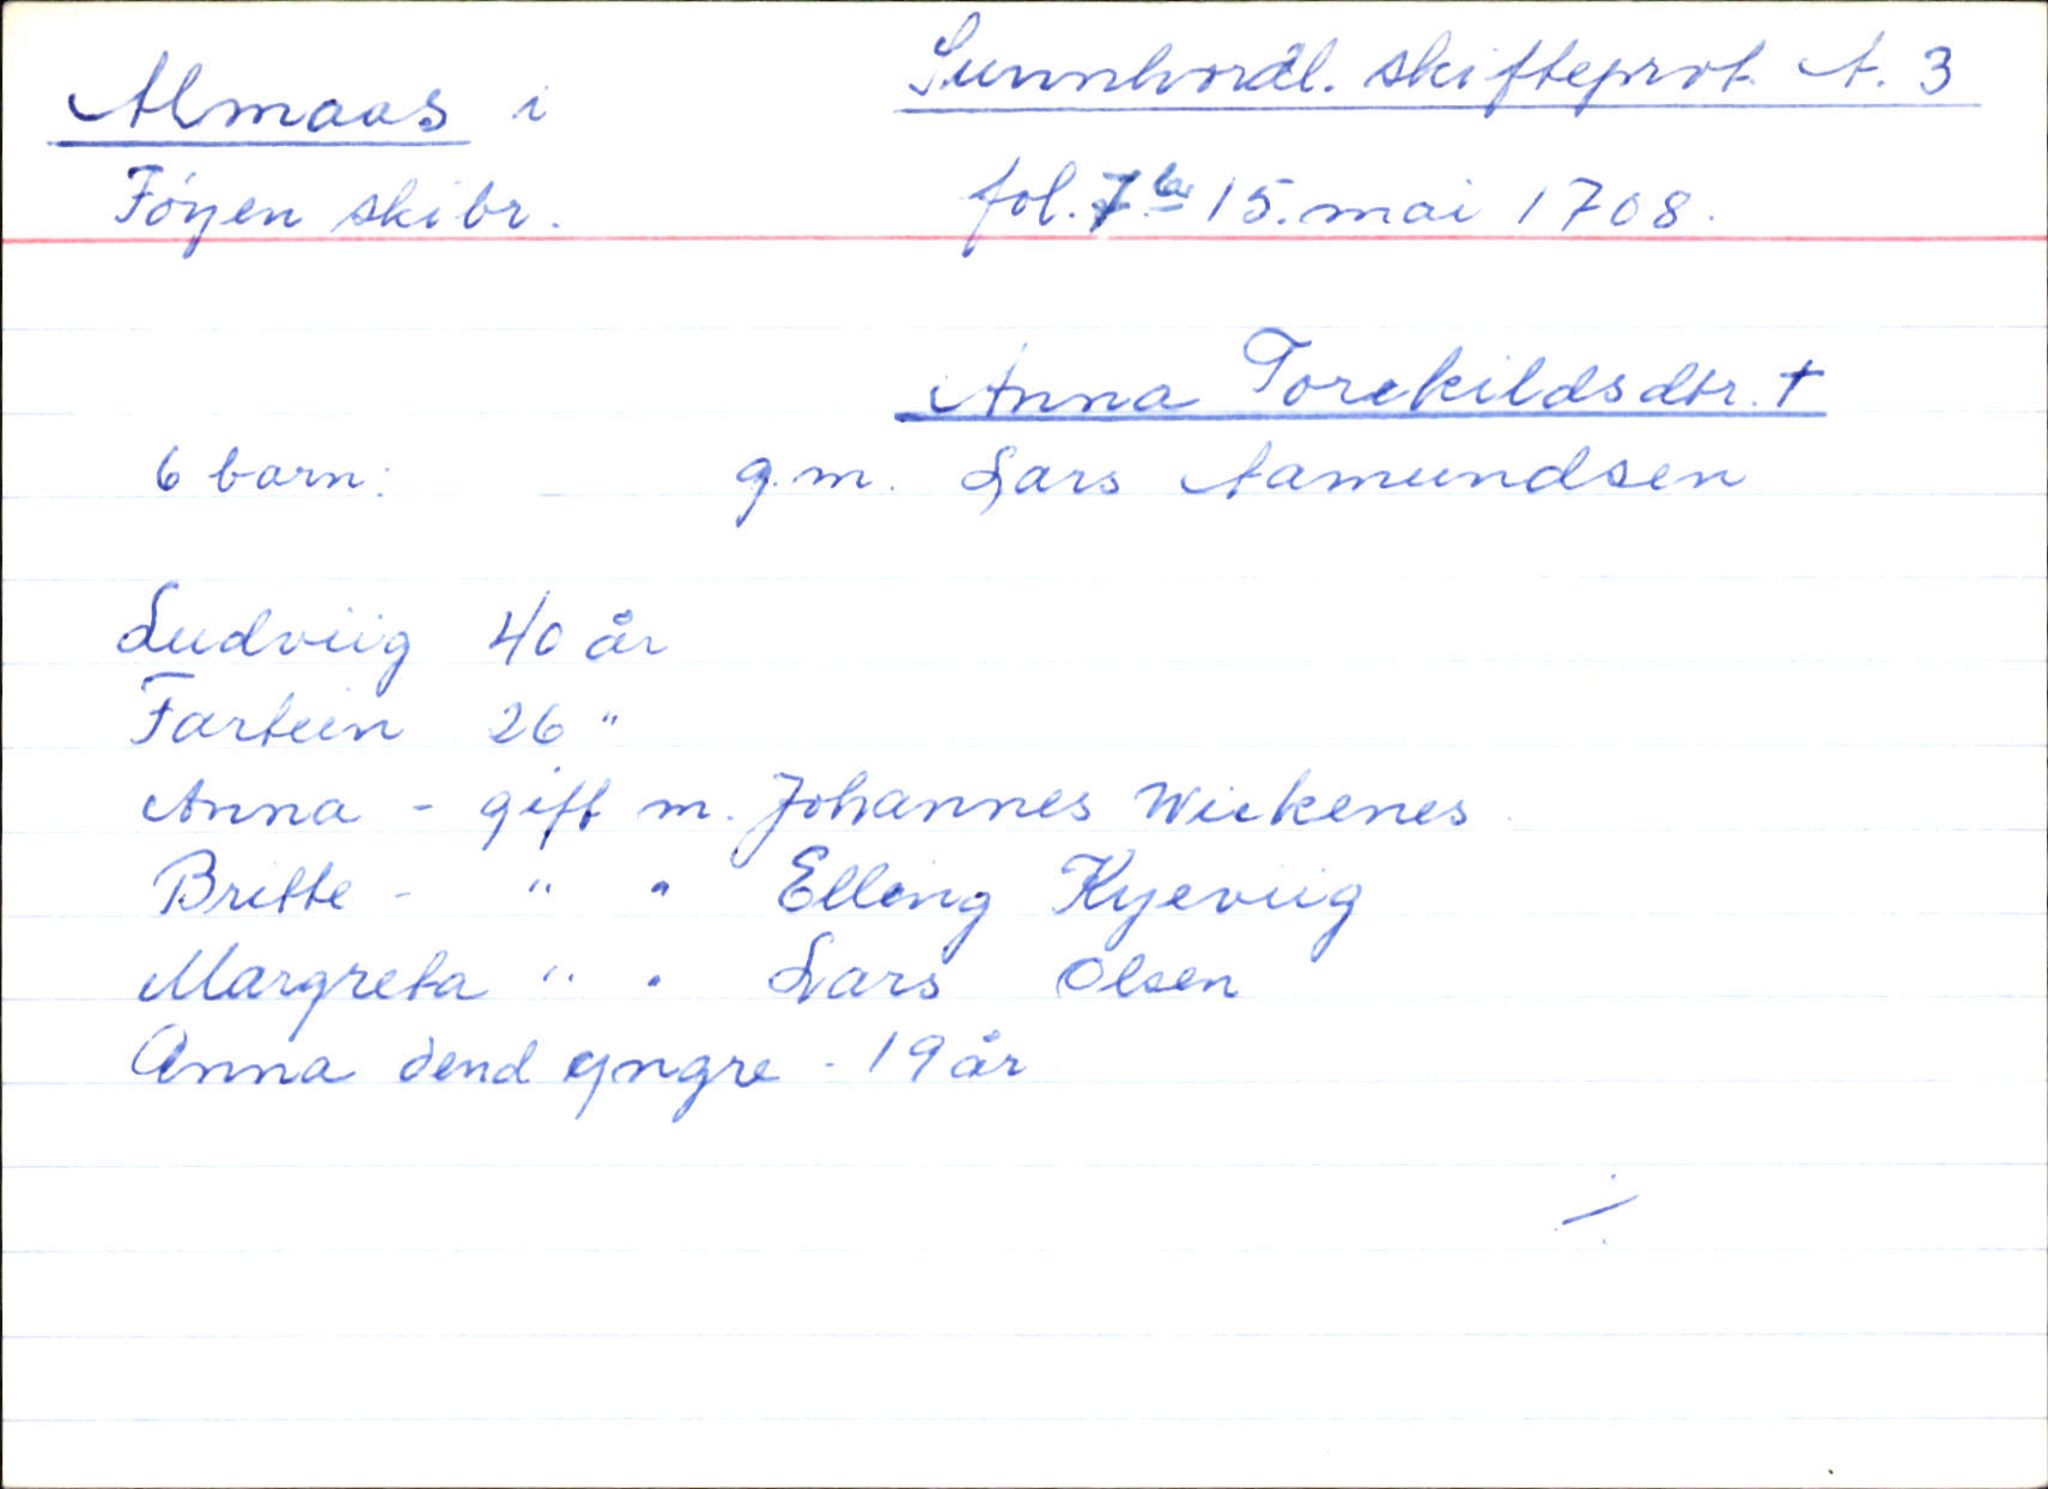 Almaas i
Sunnhordl. skifteprot. A. 3
Föyen skibr.
fol. 7 15. mai 1708.
Anna Torekildsdtr. †
6 barn:
g.m. Lars Aamundsen
Ludviig 40 år
Fartein 26 "
Anna - gift m. Johannes Wickenes
Britte - " " Elling Kyeviig
Margreta " " Lars Olsen
Anna dend yngre - 19 år